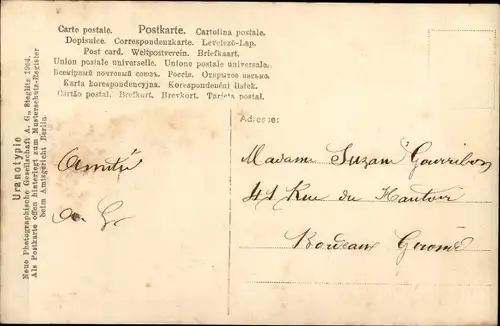 Carte postale. Postkarte. Cartolina postale.
Dopisnice. Correspondenzkarte. Levelező-Lap.
Post card. Weltpostverein. Briefkaart.
Union postale universelle. Unione postale universale.
Всемірный почтовый союзъ. Россія. Открытое письмо.
Karta korespondencyjna. Korespondenční lístek.
Cartão postal. Brefkort. Brevkort. Tarjeta postal.
Uranotypie
Neue Photographische Gesellschaft A. G., Steglitz 1904.
Als Postkarte offen hinterlegt zum Musterschutz-Register
beim Amtsgericht Berlin.
Amitié
Adresse:
Madame Suzan
41 Rue du
Bordeaux Gironde